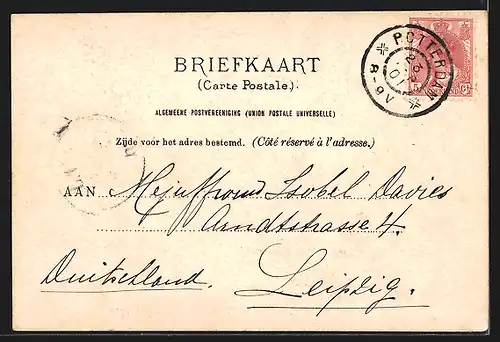 ROTTERDAM
8-9V
BRIEFKAART
(Carte Postale.)
ALGEMEENE POSTVEREENIGING (UNION POSTALE UNIVERSELLE)
Zijde voor het adres bestemd. (Côté réservé à l'adresse.)
AAN Mejuffrouw Isobel Davies
Arndtstrasse 4.
Duitschland. Leipzig.